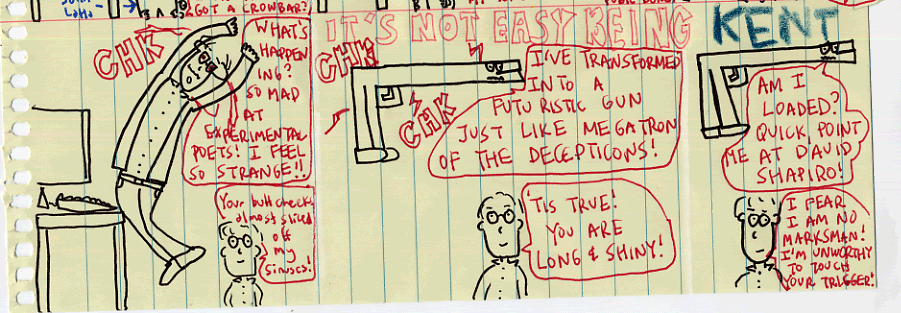 GOT A CROWBAR?
IT'S NOT EASY BEING
KENT
CHK
WHAT'S
HAPPEN
ING?
SO MAD
AT
EXPERIMENTAL
POETS! I FEEL
SO STRANGE!!
Your butt cheeks
almost sliced
off
my
sinuses!
CHK
CHK
I'VE TRANSFORMED
INTO A
FUTURISTIC GUN
JUST LIKE MEGATRON
OF THE DECEPTICONS!
'TIS TRUE!
YOU ARE
LONG & SHINY!
AM I
LOADED?
QUICK POINT
ME AT DAVID
SHAPIRO!
I FEAR
I AM NO
MARKSMAN!
I'M UNWORTHY
TO TOUCH
YOUR TRIGGER!